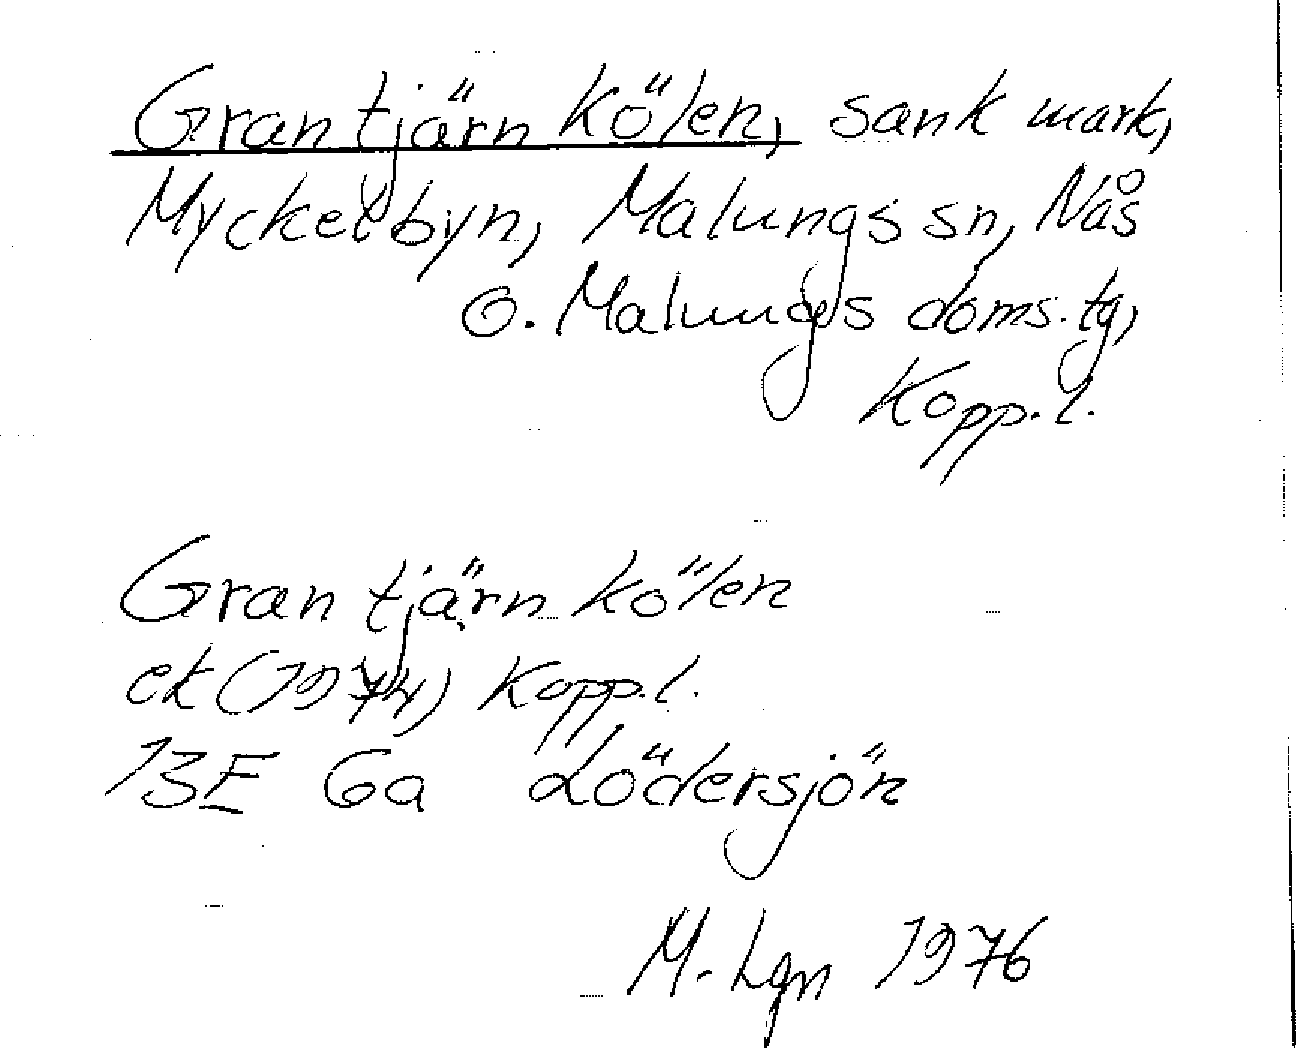 Grantjärnkölen, sank mark,
Myckelbyn, Malungs sn, Nås
o. Malungs doms.tg,
Kopp.l.
Grantjärnkölen
ek (1974) Kopp.l.
13E 6a Lödersjön
M. Lgn 1976